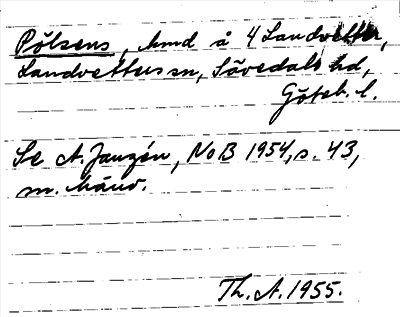 Pölsens, hmd å 4 Landvetter,
Landvetters sn, Sävedals hd,
Göteb. l.
Se A. Janzén, NoB 1954, s. 43,
m. hänv.
Th. A. 1955.